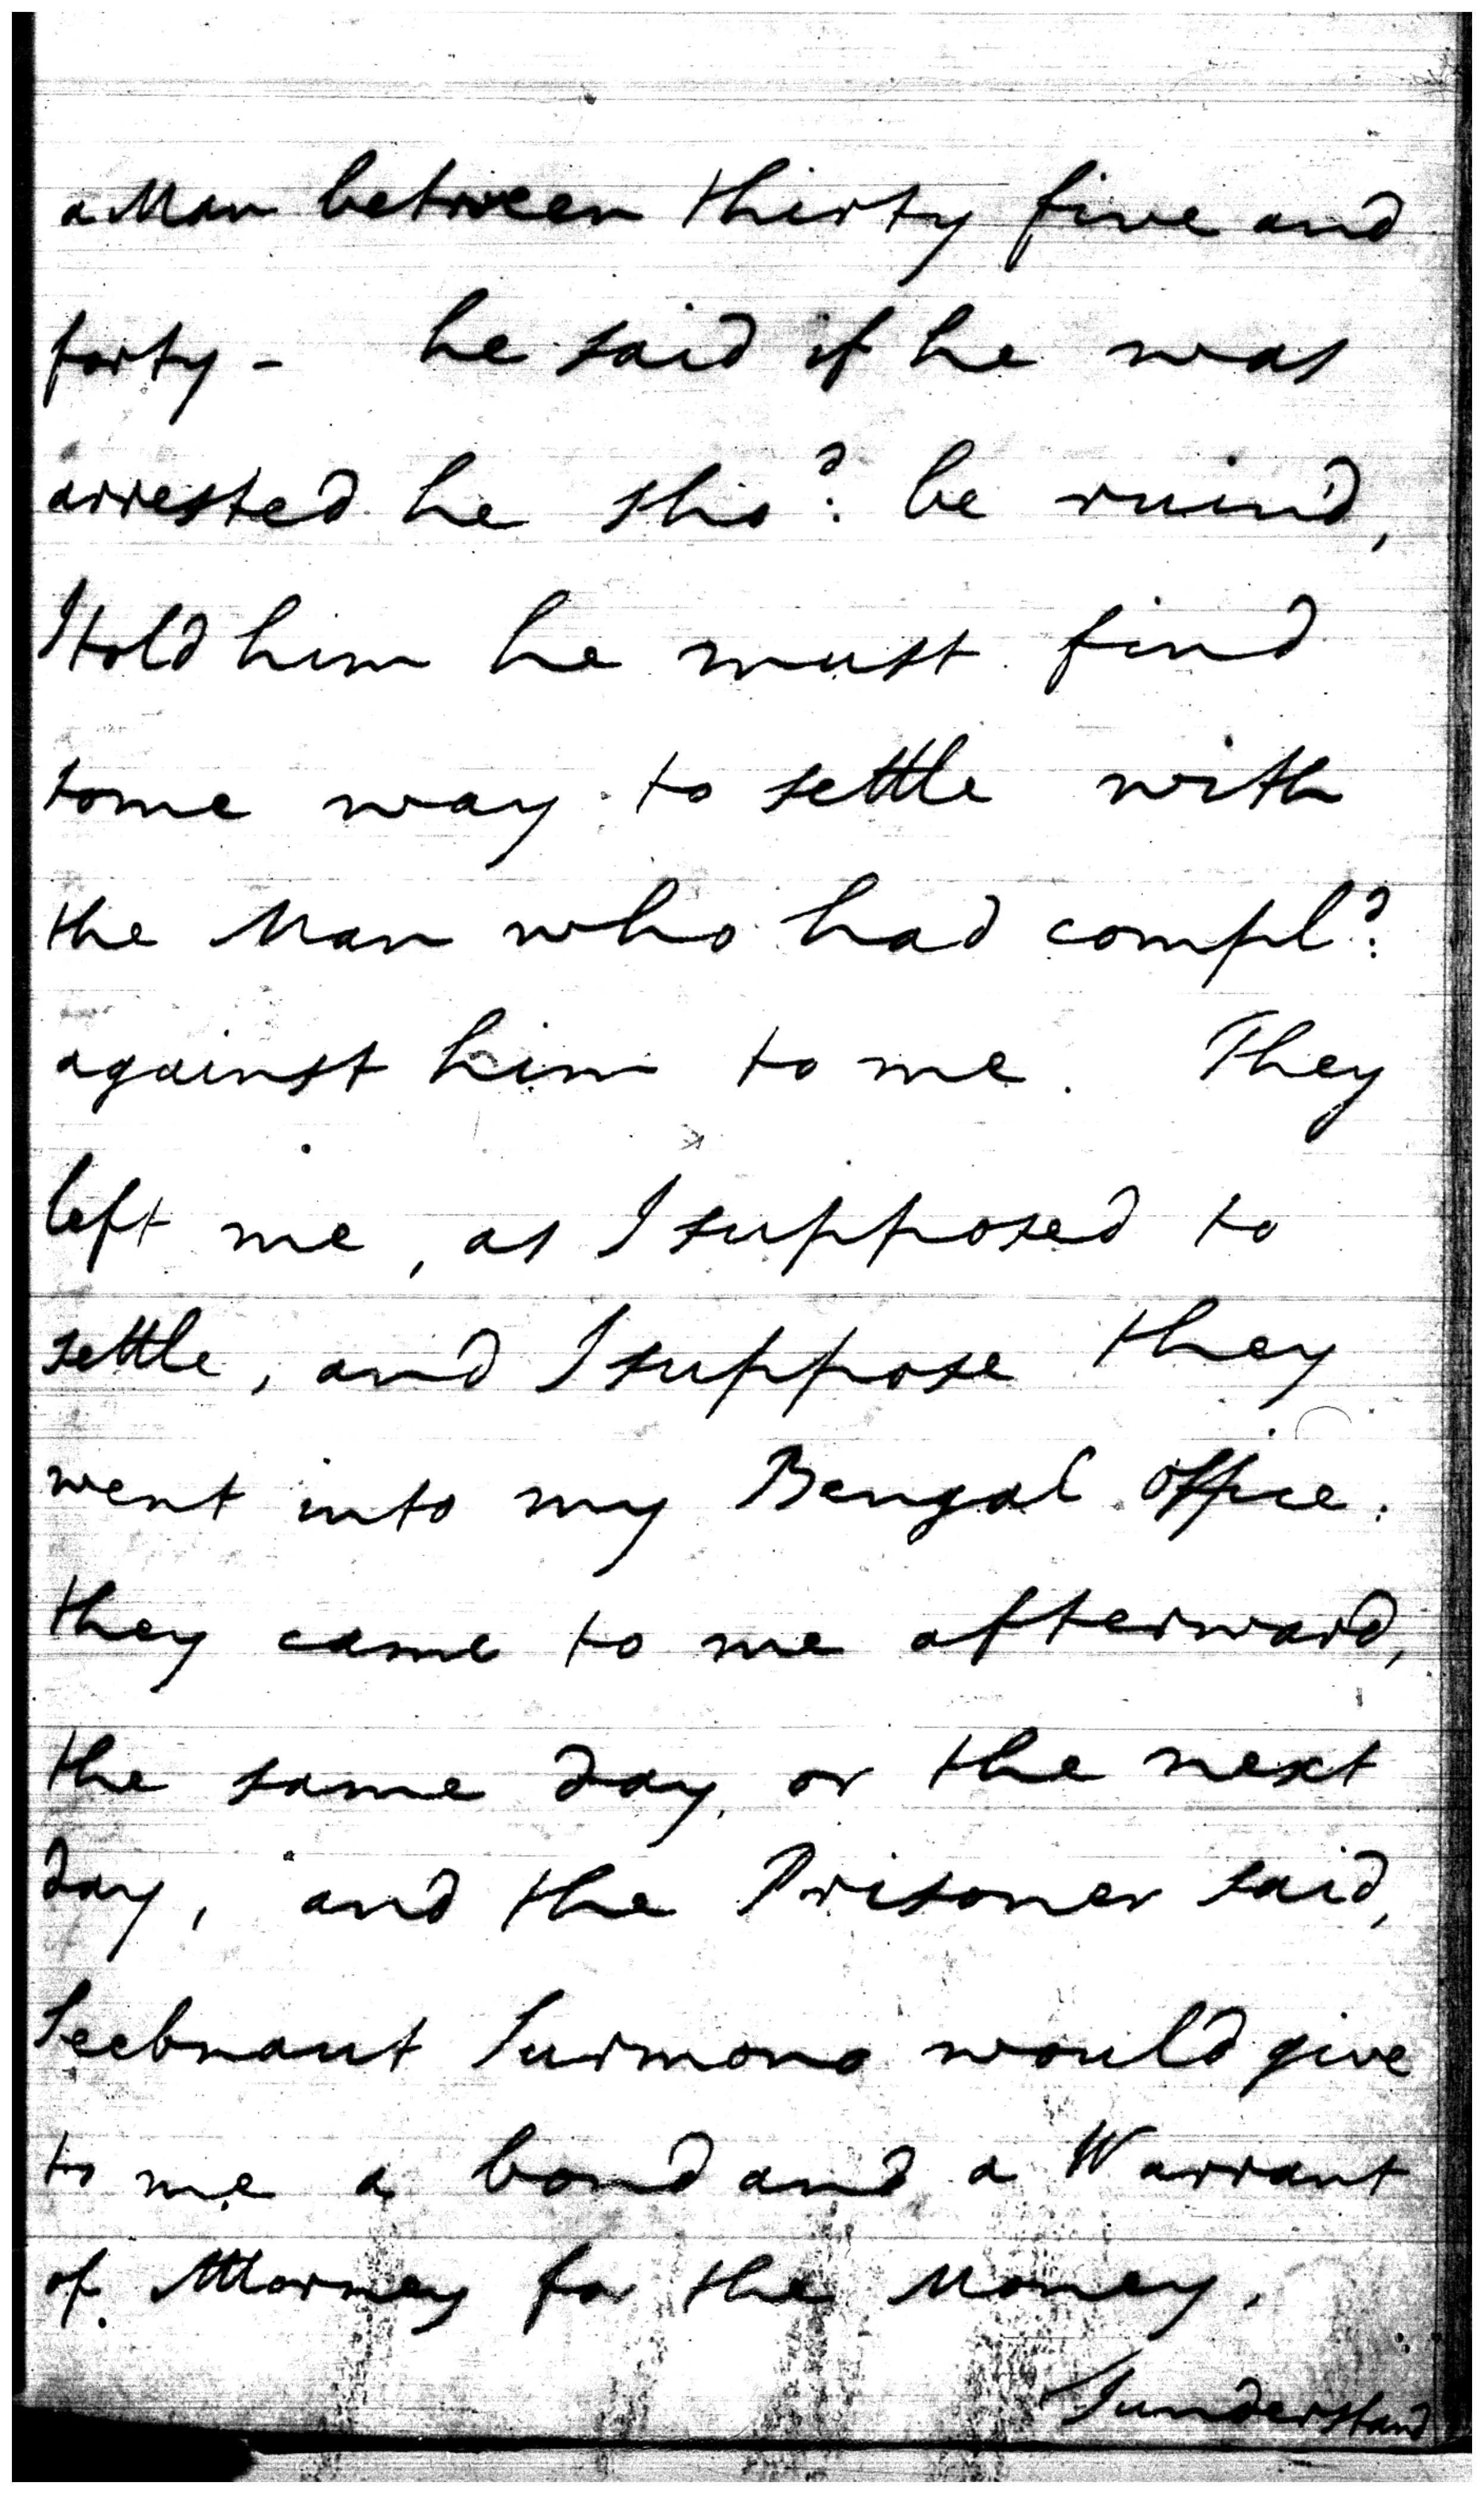 a Man between thirty five and
forty - he said if he was
arrested he sho^d: be ruind,
I told him he must find
some way to settle with
the Man who had compl^d:
against him to me. They
left me, as I supposed to
settle, and I suppose they
went into my Bengal office.
they came to me afterward,
the same day, or the next
day, and the Prisoner said,
Seebnaut Surmono would give
to me a bond and a Warrant
of Attorney for the Money.
I understand